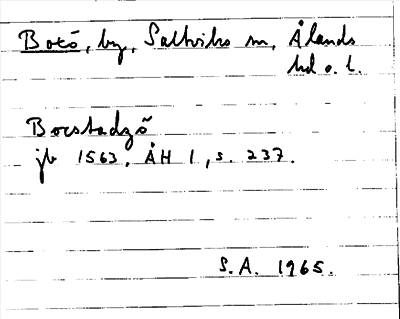 Botö, by, Saltviks sn, Ålands
hd o. l.
Bocstadzö
jb 1563. ÅH 1, s. 237.
S.A. 1965.